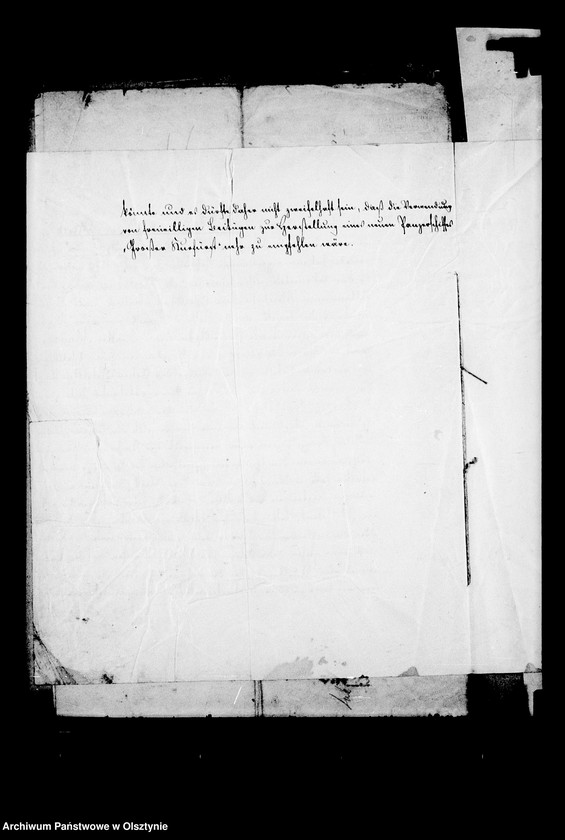 könnte und es dürfte daher nicht zweifelhaft sein, daß die Verwendung
von freiwilligen Beiträgen zur Herstellung eines neuen Panzerschiffes
„Großer Kurfürst“ mehr zu empfehlen wäre.
Archiwum Państwowe w Olsztynie